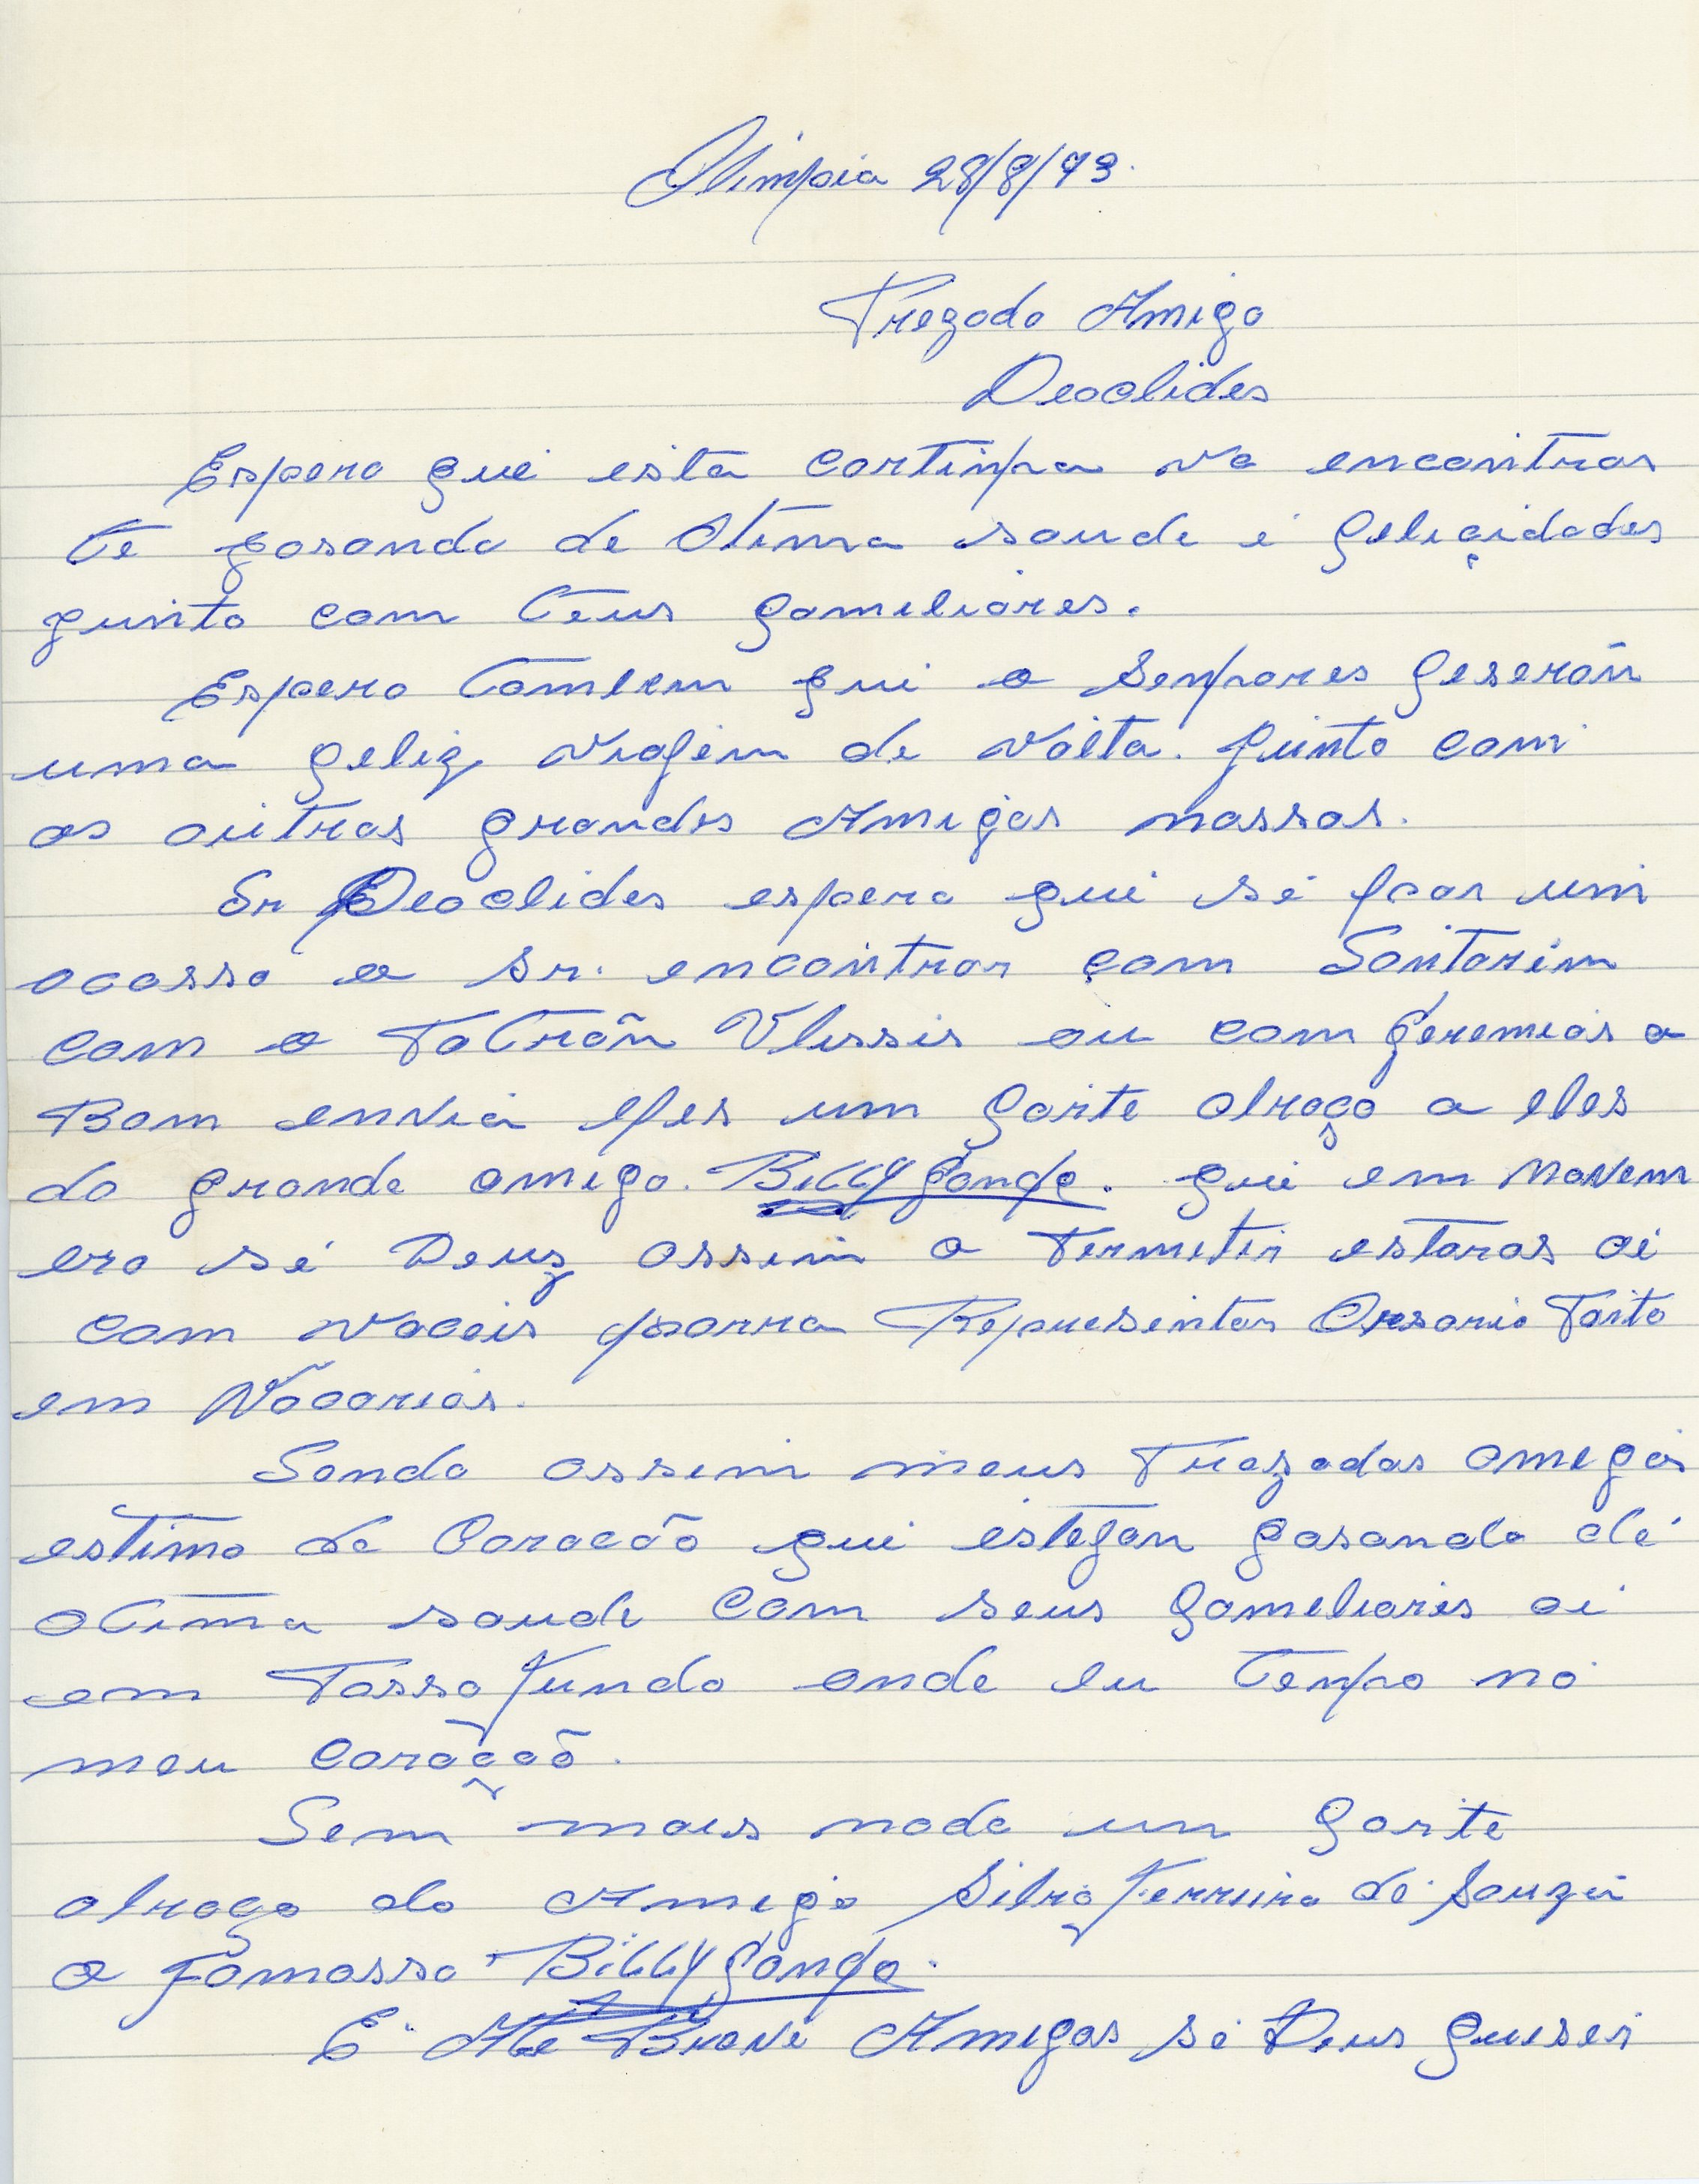 Olimpia 28/8/73.
Prezado Amigo
Deoclides
Espero que esta cartinha vá encontrar
te gosando de Otima saude e feliçidades
junto com teus fameliares.
Espero tambem que o Senhores feserãn
uma feliz viajem de volta. Junto com
os outros grandes Amigos nossos.
Sr Deoclides espero que se for um
acasso o Sr. encontrar com Santarém
com o Patrãn Ulissis ou com Jeremias o
Bom envia lhes um forte abraço a eles
do grande amigo. Billy Ganga. que em Novem
ero se Deuz assim o Permitir estaras ai
com voceis parra Representar Porto
em Vãcarias.
Sendo assim meus Prezados amegos
estimo de Coracão que estejan gosando de
otima saude com seus fameliaris ai
em Passo Fundo onde eu tenho no
meu coraçãõ.
Sem mais nada un forte
abraço do Amigo Ferreira de Souza
o Famosso Billy Ganga.
E Até Breve Amigos se Deus quiser